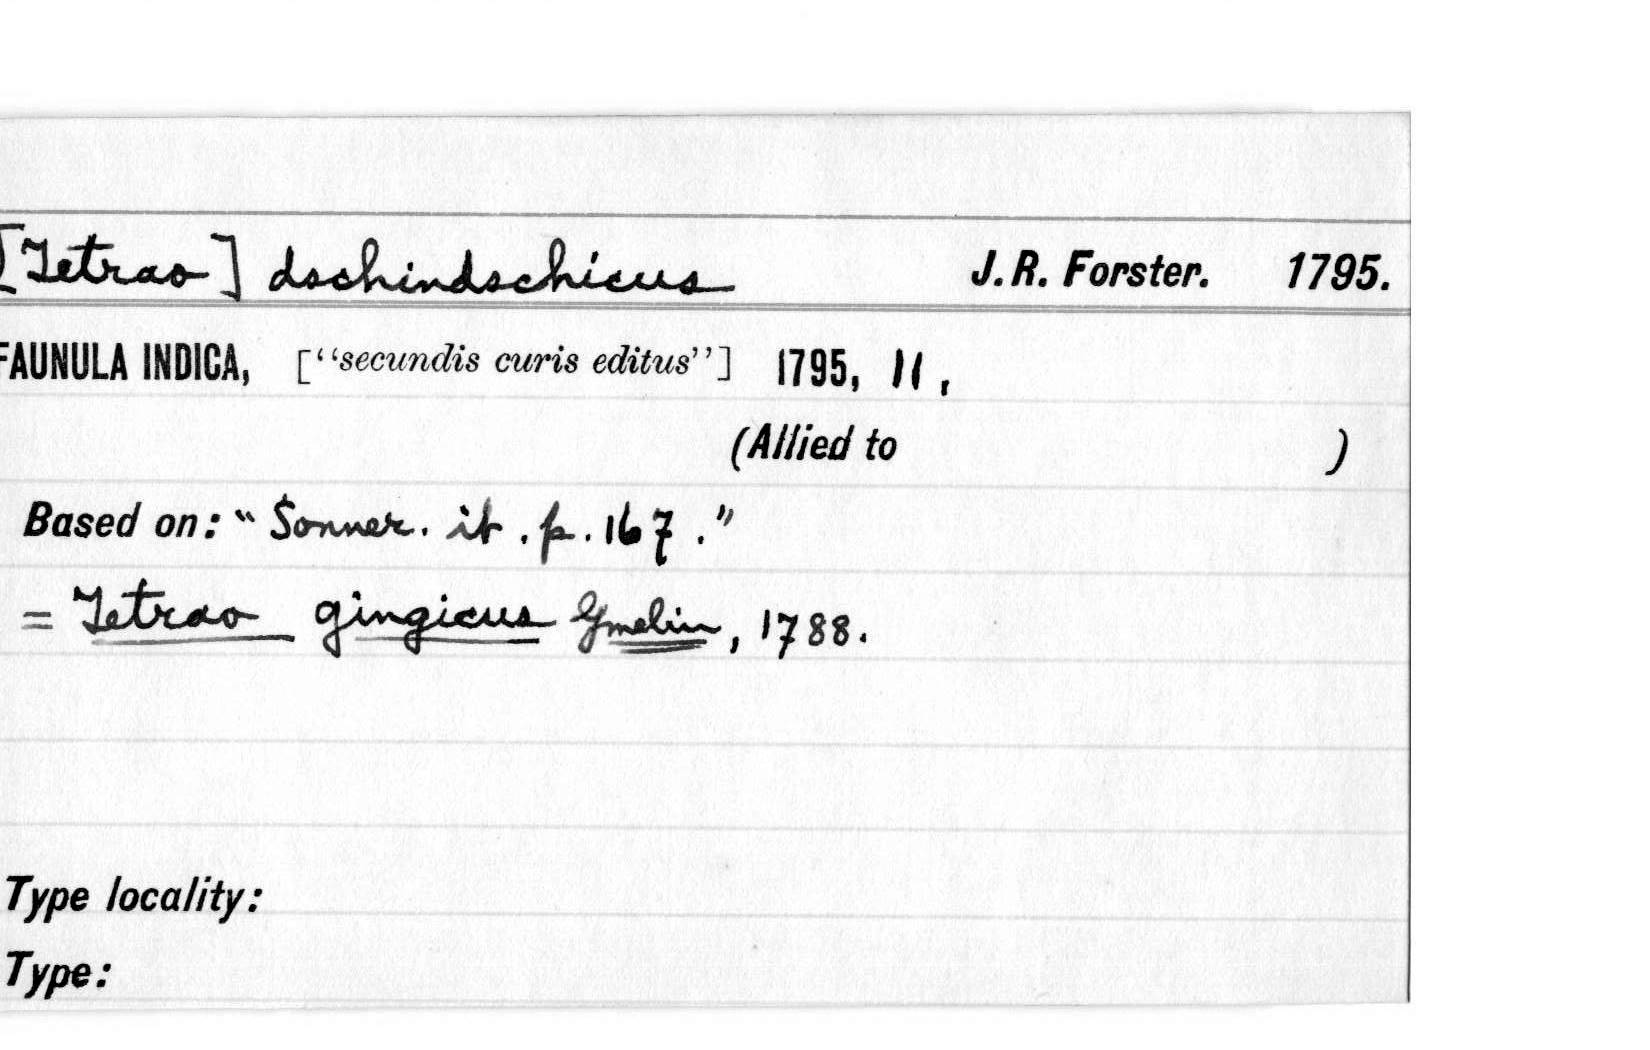 [Tetrao] dschindschicus J. R. Forster. 1795.
FAUNULA INDICA, [“secundis curis editus”] 1795, 11,
(Allied to )
Based on: “Sonner. it. p. 167.”
= Tetrao gingicus Gmelin, 1788.
Type locality:
Type: